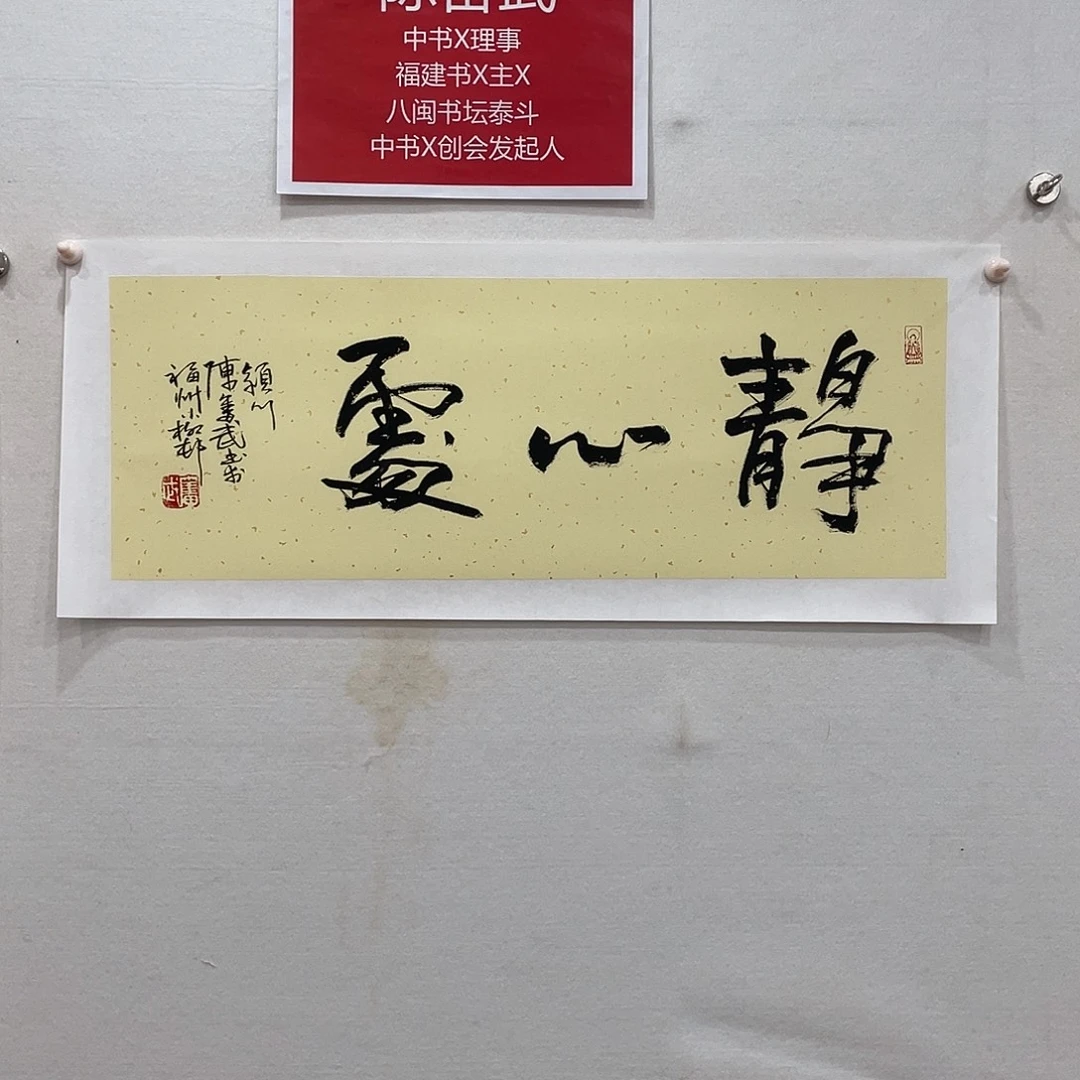 陈奋武
中书X理事
福建书X主X
八闽书坛泰斗
中书X创会发起人
靜心處
潁川
陳奮武書
福州小柳邨